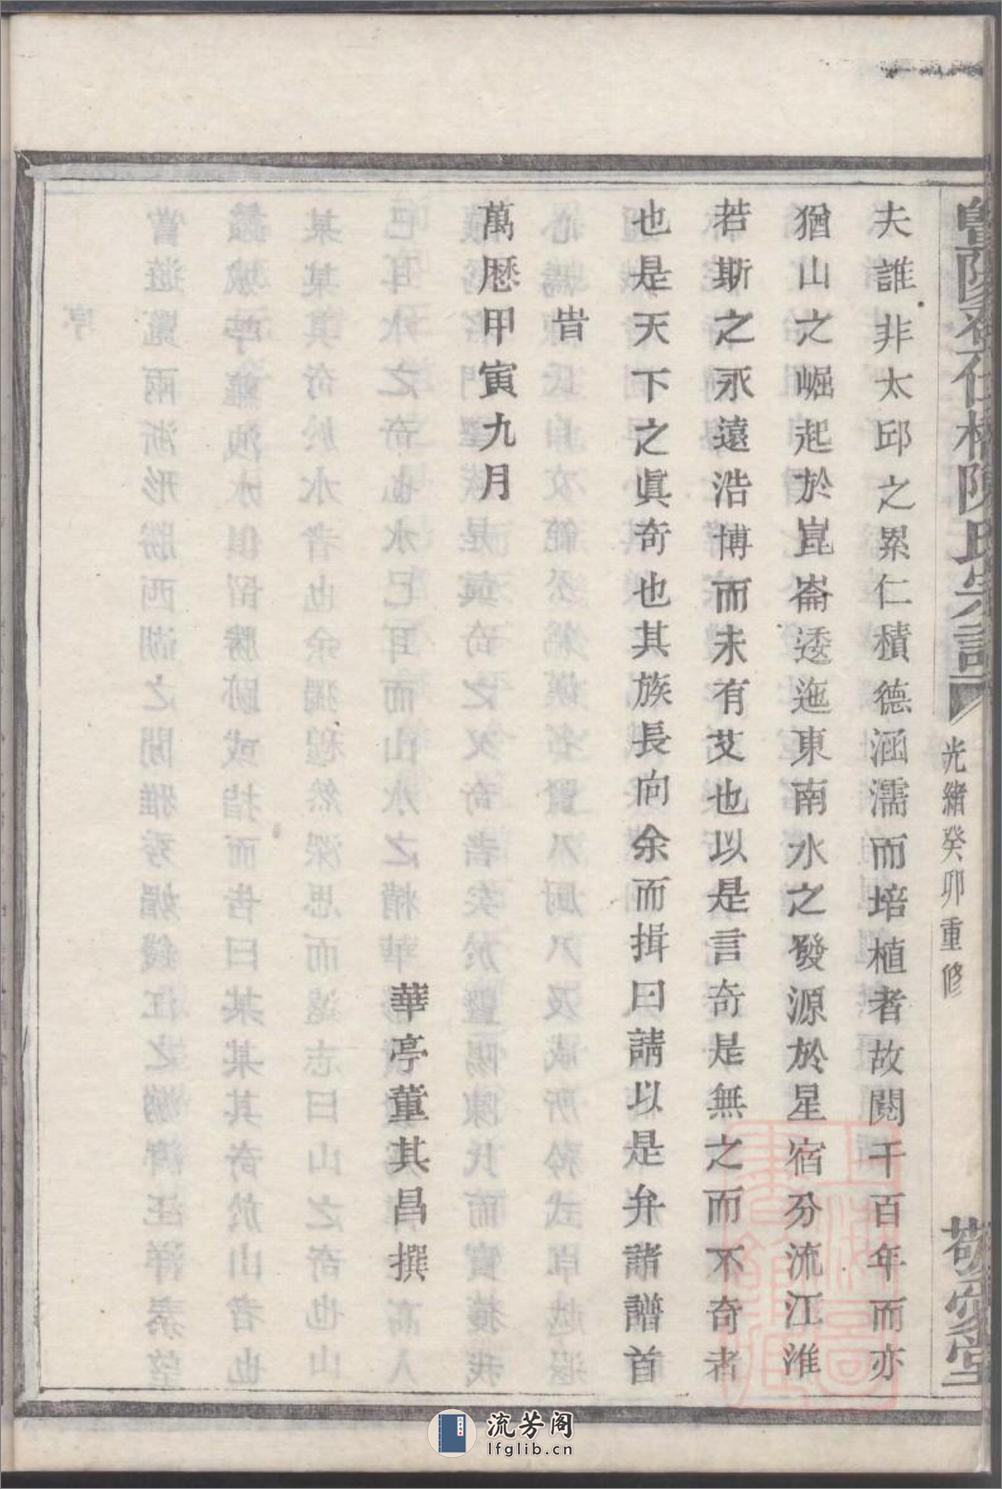 暨陽孝仁橋陳氏宗譜
光緒癸卯重修
敬愛堂
夫誰非太邱之累仁積德涵濡而培植者故閱千百年而亦
猶山之崛起於崑崙逶迤東南水之發源於星宿分流江淮
若斯之永遠浩博而未有艾也以是言奇是無之而不奇者
也是天下之眞奇也其族長向余而揖曰請以是弁諸譜首
旹
萬厯甲寅九月
華亭董其昌撰
流芳阁
lfglib.cn